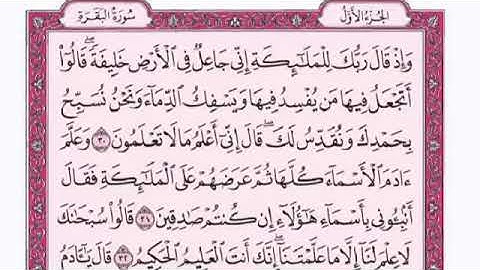 الجزء الأول
سورة البقرة
وَإِذْ قَالَ رَبُّكَ لِلْمَلَٰٓئِكَةِ إِنِّى جَاعِلٌ فِى ٱلْأَرْضِ خَلِيفَةً ۖ قَالُوٓا۟
أَتَجْعَلُ فِيهَا مَن يُفْسِدُ فِيهَا وَيَسْفِكُ ٱلدِّمَآءَ وَنَحْنُ نُسَبِّحُ
بِحَمْدِكَ وَنُقَدِّسُ لَكَ ۖ قَالَ إِنِّىٓ أَعْلَمُ مَا لَا تَعْلَمُونَ ٣٠ وَعَلَّمَ
ءَادَمَ ٱلْأَسْمَآءَ كُلَّهَا ثُمَّ عَرَضَهُمْ عَلَى ٱلْمَلَٰٓئِكَةِ فَقَالَ
أَنۢبِـُٔونِى بِأَسْمَآءِ هَٰٓؤُلَآءِ إِن كُنتُمْ صَٰدِقِينَ ٣١ قَالُوا۟ سُبْحَٰنَكَ
لَا عِلْمَ لَنَآ إِلَّا مَا عَلَّمْتَنَآ ۖ إِنَّكَ أَنتَ ٱلْعَلِيمُ ٱلْحَكِيمُ ٣٢ قَالَ يَٰٓـَٔادَمُ